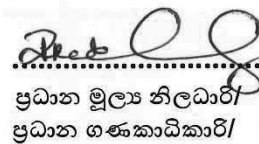 ප්‍රධාන මූල්‍ය නිලධාරි/
ප්‍රධාන ගණකාධිකාරි/